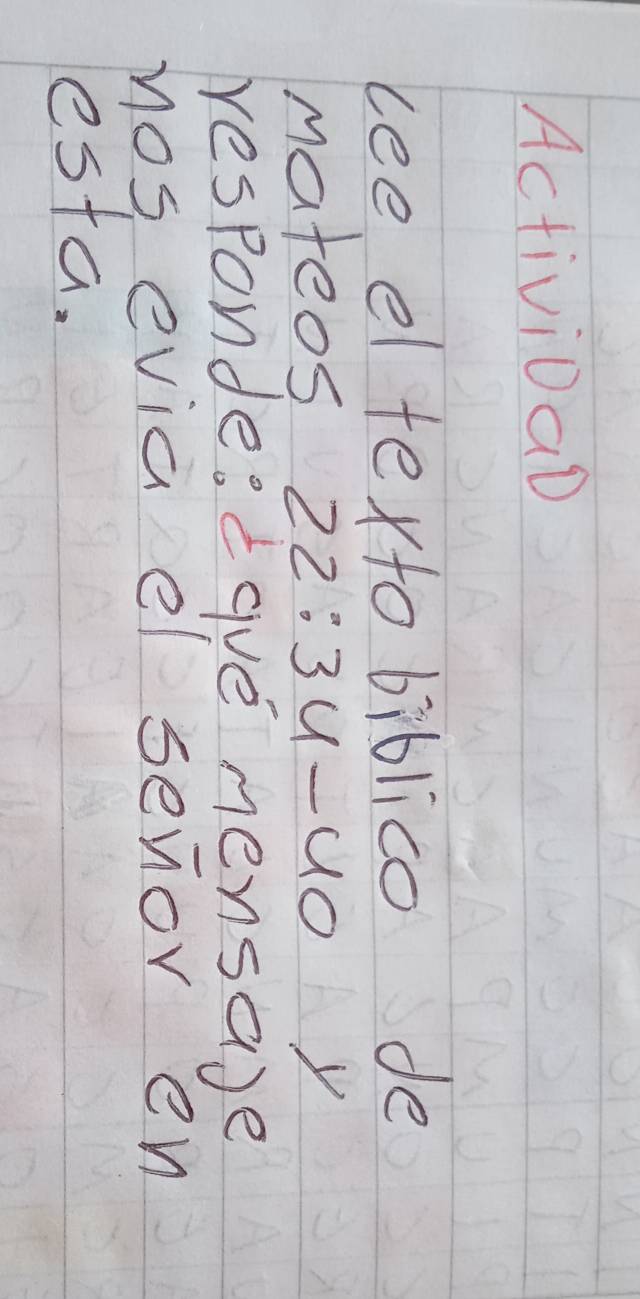 ActiviDaD
Lee el texto biblico de
Mateos 22:34-40 y
responde: ¿qué mensaje
nos evia el señor en
esta.